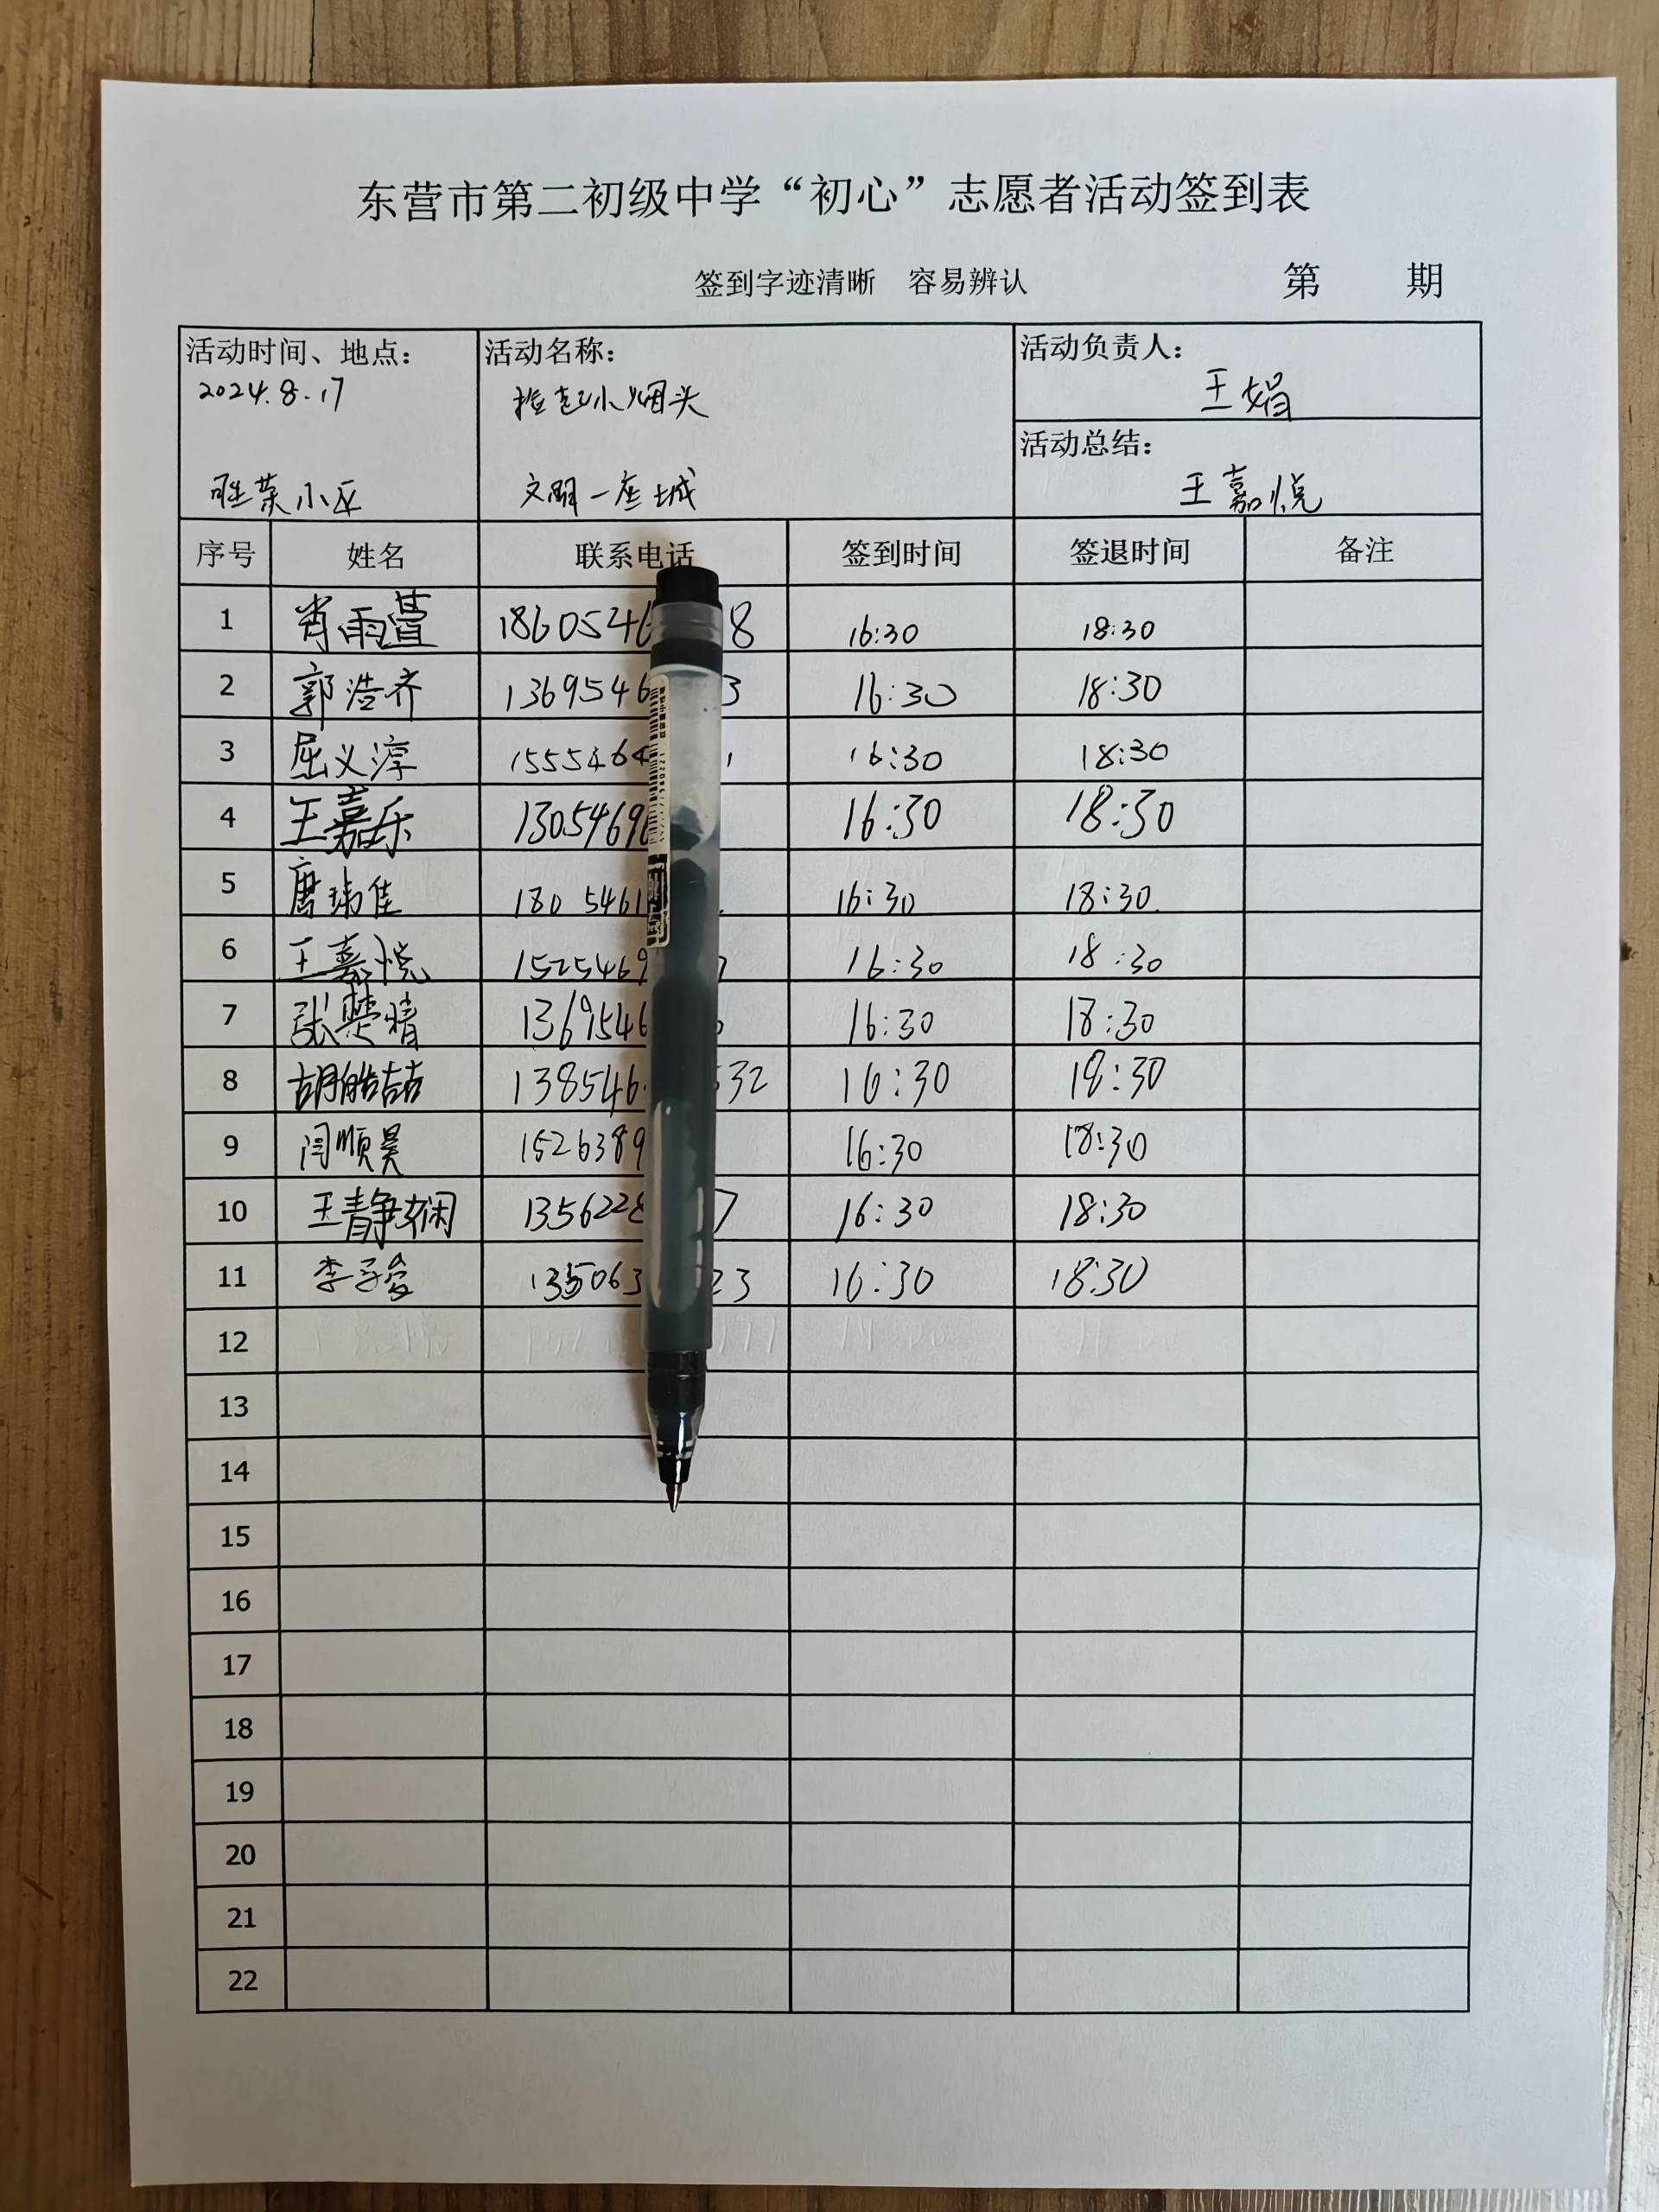 东营市第二初级中学“初心”志愿者活动签到表
签到字迹清晰 容易辨认 第 期
活动时间、地点： 活动名称： 活动负责人：
2024.8.17 捡起小烟头 王娟
活动总结：
胜采小区 文明一座城 王嘉悦
序号 姓名 联系电话 签到时间 签退时间 备注
1 肖雨萱 1860546 8 16:30 18:30
2 郭浩齐 1369546 3 16:30 18:30
3 屈义淳 1555464 1 16:30 18:30
4 王嘉乐 1305469 16:30 18:30
5 唐瑀佳 180 5461 16:30 18:30
6 王嘉悦 1525469 7 16:30 18:30
7 张楚晴 1369546 16:30 18:30
8 胡皓喆 138546 32 16:30 18:30
9 闫顺昊 1526389 16:30 18:30
10 王静娴 1356228 7 16:30 18:30
11 李子 135063 23 16:30 18:30
12
13
14
15
16
17
18
19
20
21
22